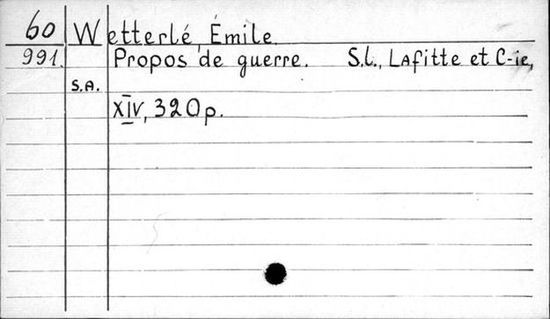 60 Wetterlé, Émile
991. Propos de guerre. S.l., Lafitte et C-ie,
s.a.
XIV, 320 p.